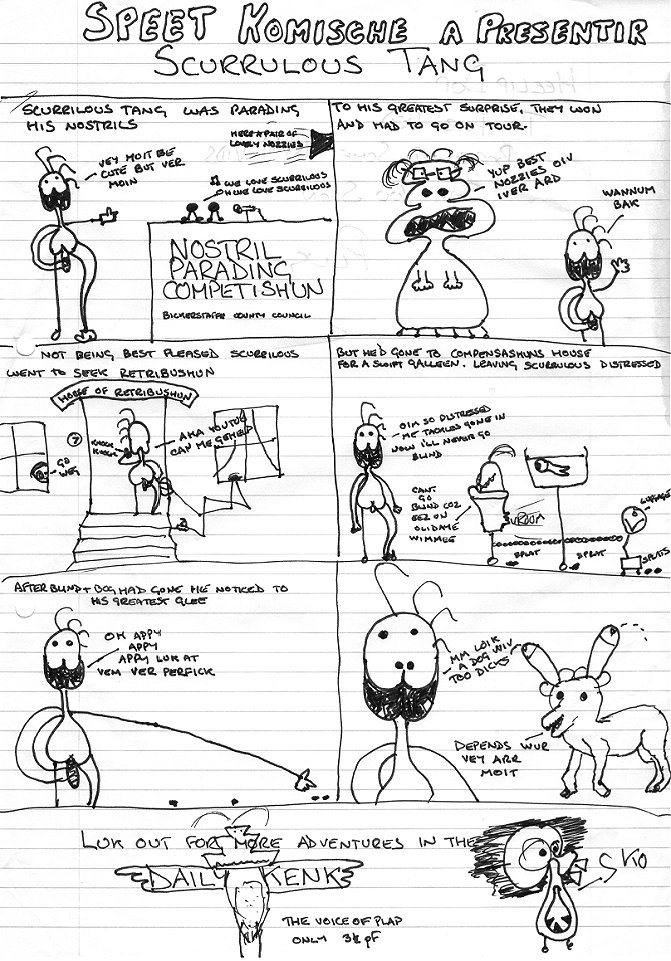 SPEET KOMISCHE A PRESENTIR
SCURRULOUS TANG
SCURRILOUS TANG WAS PARADING
HIS NOSTRILS
VEY MOIT BE
CUTE BUT VER
MOIN
HERE A PAIR OF
LOVELY NOZZIES
WE LOVE SCURRILOUS
OH WE LOVE SCURRILOUS
NOSTRIL
PARADING
COMPETISHUN
BICKERSTAFFE COUNTY COUNCIL
TO HIS GREATEST SURPRISE, THEY WON
AND HAD TO GO ON TOUR.
YUP BEST
NOZZIES OIV
IVER ARD
WANNUM
BAK
NOT BEING BEST PLEASED SCURRILOUS
WENT TO SEEK RETRIBUSHUN
HOUSE OF RETRIBUSHUN
7
KNOCK
KNOCK
GO
WEY
AKA YOUTOO
CAN ME GEHED
BUT HE'D GONE TO COMPENSASHUNS HOUSE
FOR A SWIFT GALLEIEN. LEAVING SCURRULOUS DISTRESSED
OIM SO DISTRESSED
ME TACKLES GONE IN
NOW I'LL NEVER GO
BLIND
CANT
GO
BLIND COZ
EEZ ON
OLIDAME
WIMMEE
SPLAT
SPLAT
SPLATS
AFTER BLIND + DOG HAD GONE HE NOTICED TO
HIS GREATEST GLEE
OH APPY
APPY
APPY LUK AT
VEM VER PERFICK
MM LOIK
A DOG WIV
TOO DICKS
DEPENDS WUR
VEY ARR
MOIT
LUK OUT FOR MORE ADVENTURES IN THE
DAILY KENK
SKO
THE VOICE OF PLAP
ONLY 3½ PF